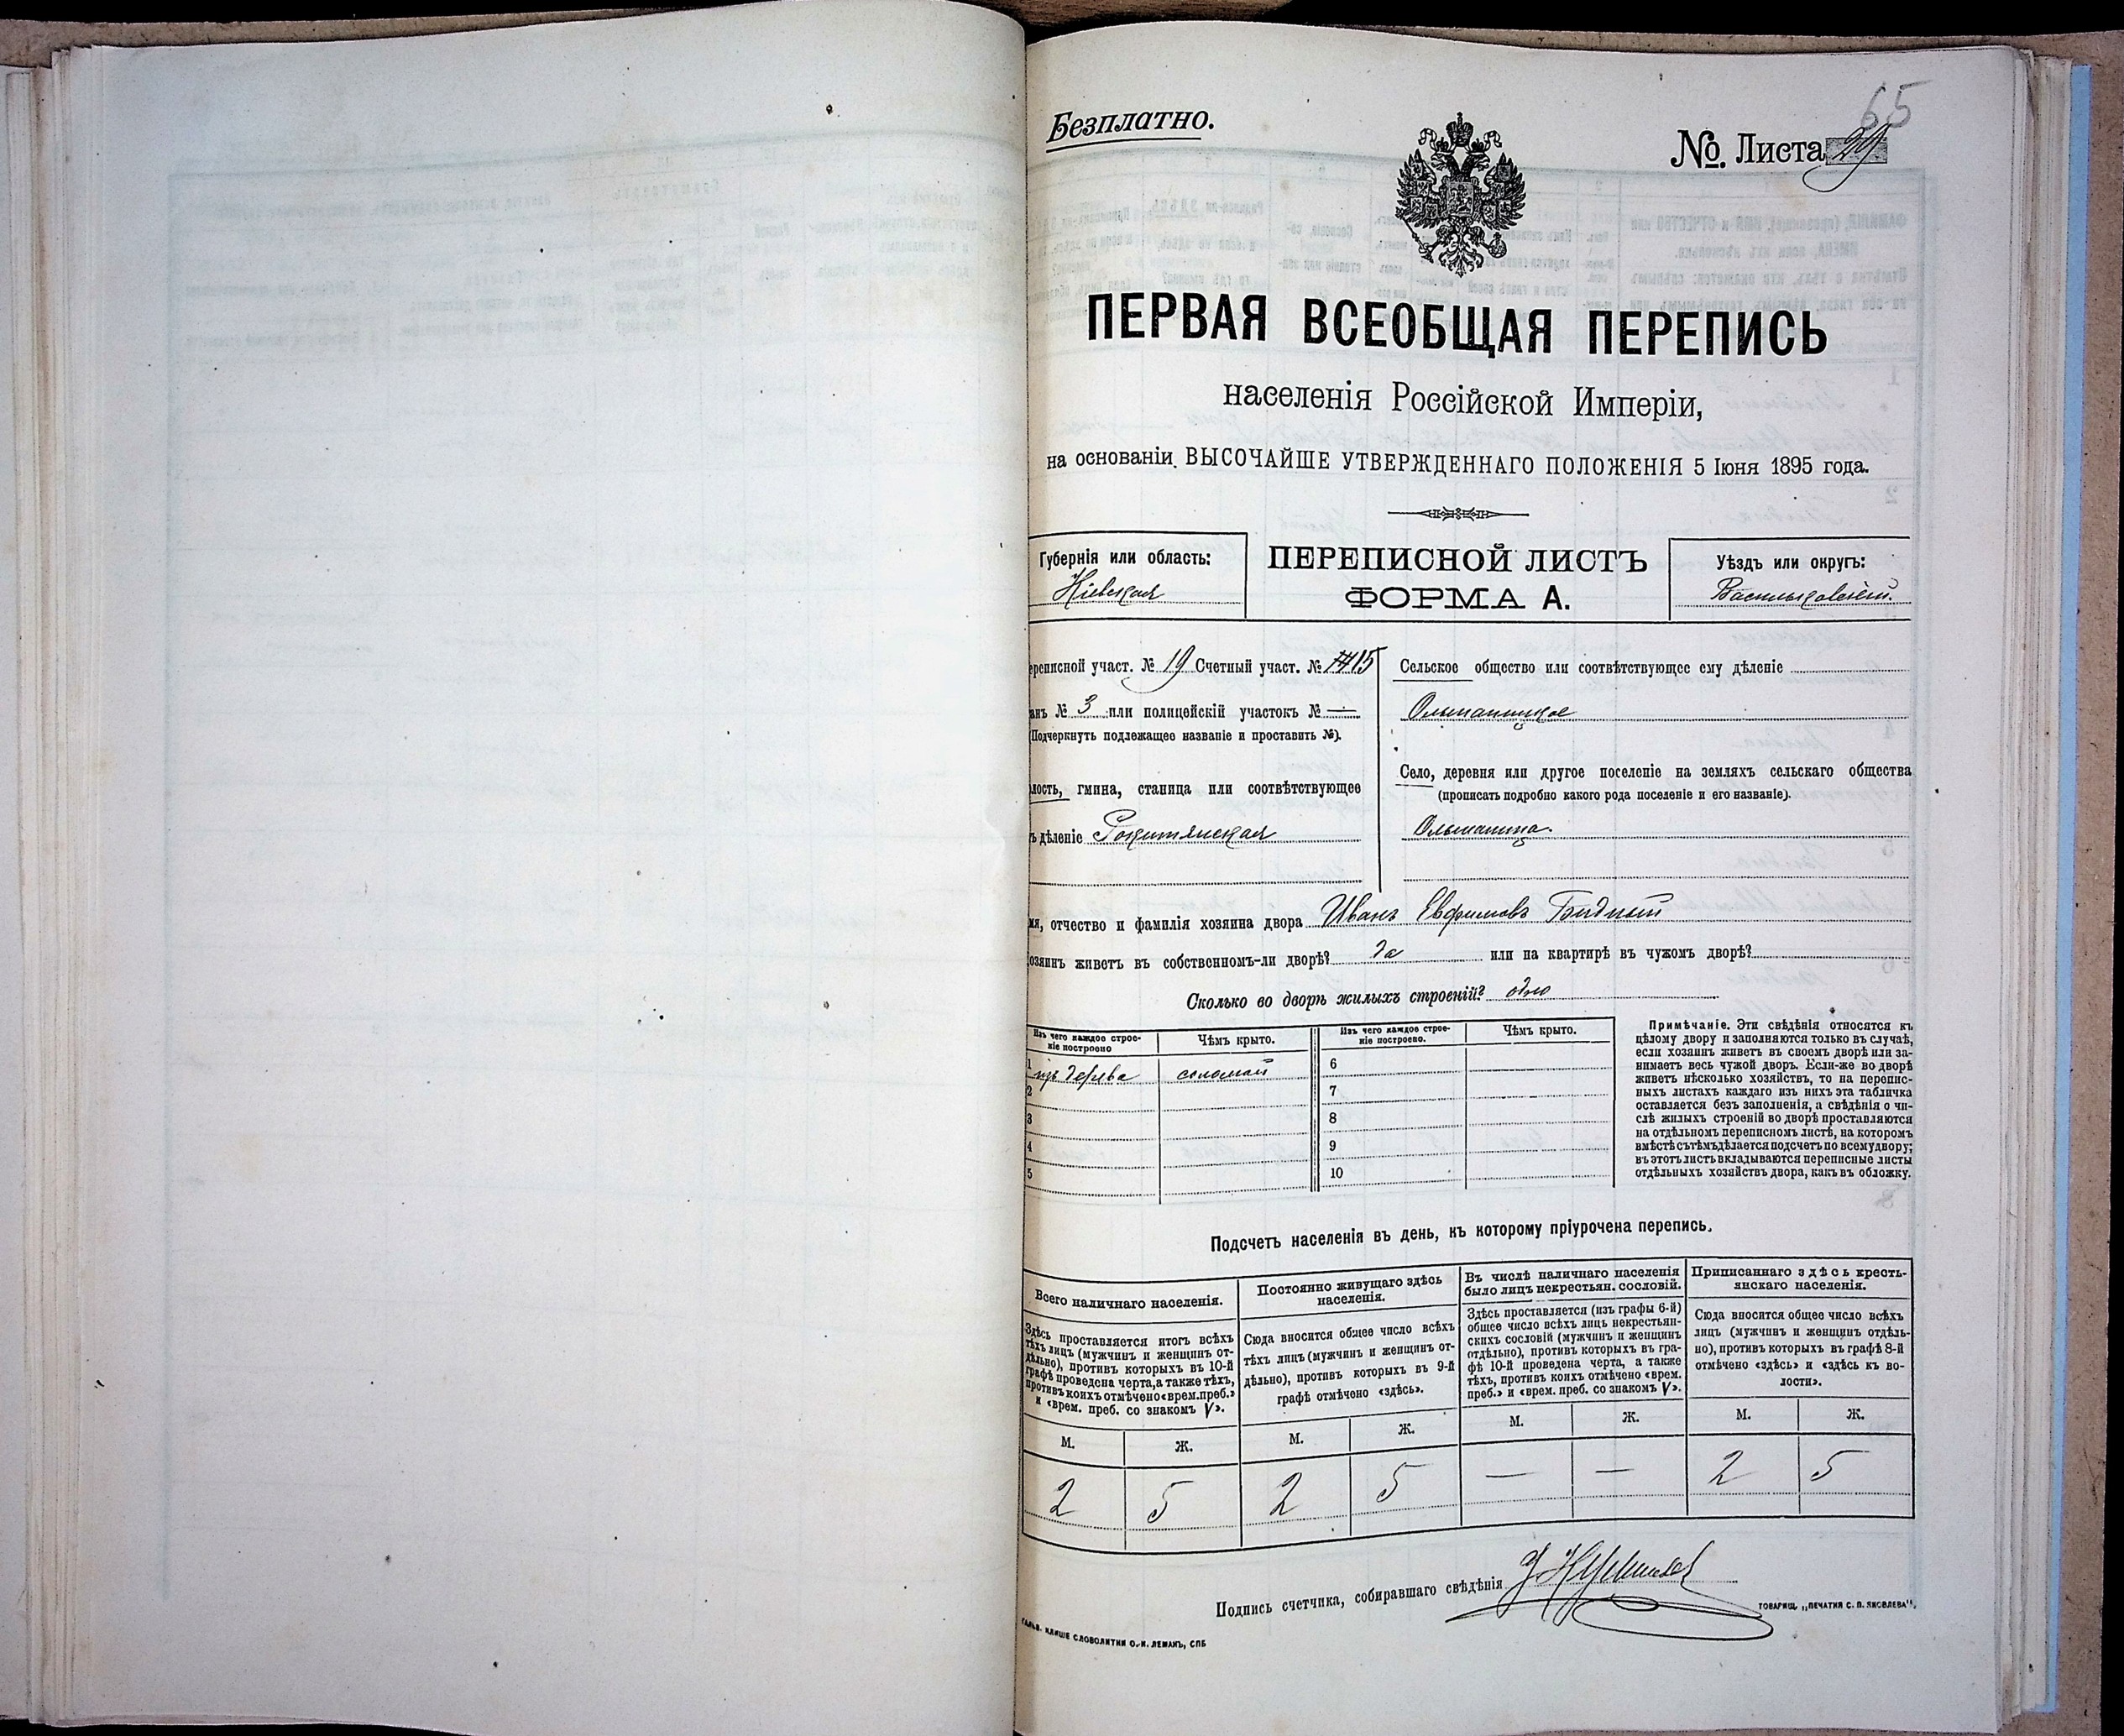 65
Безплатно.
№. Листа 29.
ПЕРВАЯ ВСЕОБЩАЯ ПЕРЕПИСЬ
населенія Россійской Имперіи,
на основаніи ВЫСОЧАЙШЕ УТВЕРЖДЕННАГО ПОЛОЖЕНІЯ 5 Іюня 1895 года.
Губернія или область:
Кіевская
ПЕРЕПИСНОЙ ЛИСТЪ
ФОРМА А.
Уѣздъ или округъ:
Васильковскій.
ереписной участ. № 19 Счетный участ. № 15
анъ № 3 или полицейскій участокъ № —
(Подчеркнуть подлежащее названіе и проставить №).
лость, гмина, станица или соотвѣтствующее
ъ дѣленіе Рокитянская
Сельское общество или соотвѣтствующее ему дѣленіе
Ольшаницкое
Село, деревня или другое поселеніе на земляхъ сельскаго общества
(прописать подробно какого рода поселеніе и его названіе).
Ольшаница.
мя, отчество и фамилія хозяина двора Иванъ Евфимовъ Бидный
озяинъ живетъ въ собственномъ-ли дворѣ? да или на квартирѣ въ чужомъ дворѣ?
Сколько во дворѣ жилыхъ строеній? одно
Изъ чего каждое строе-
ніе построено
Чѣмъ крыто.
Изъ чего каждое строе-
ніе построено.
Чѣмъ крыто.
1 изъ дерева соломой 6
2 7
3 8
4 9
5 10
Примѣчаніе. Эти свѣдѣнія относятся къ
цѣлому двору и заполняются только въ случаѣ,
если хозяинъ живетъ въ своемъ дворѣ или за-
нимаетъ весь чужой дворъ. Если-же во дворѣ
живетъ нѣсколько хозяйствъ, то на перепис-
ныхъ листахъ каждаго изъ нихъ эта табличка
оставляется безъ заполненія, а свѣдѣнія о чи-
слѣ жилыхъ строеній во дворѣ проставляются
на отдѣльномъ переписномъ листѣ, на которомъ
вмѣстѣ съ тѣмъ дѣлается подсчетъ по всему двору;
въ этотъ листъ вкладываются переписные листы
отдѣльныхъ хозяйствъ двора, какъ въ обложку.
Подсчетъ населенія въ день, къ которому пріурочена перепись.
Всего наличнаго населенія.
Здѣсь проставляется итогъ всѣхъ
тѣхъ лицъ (мужчинъ и женщинъ от-
дѣльно), противъ которыхъ въ 10-й
графѣ проведена черта, а также тѣхъ,
противъ коихъ отмѣчено «врем. преб.»
и «врем. преб. со знакомъ V».
М. Ж.
2 5
Постоянно живущаго здѣсь
населенія.
Сюда вносится общее число всѣхъ
тѣхъ лицъ (мужчинъ и женщинъ от-
дѣльно), противъ которыхъ въ 9-й
графѣ отмѣчено «здѣсь».
М. Ж.
2 5
Въ числѣ наличнаго населенія
было лицъ некрестьян. сословій.
Здѣсь проставляется (изъ графы 6-й)
общее число всѣхъ лицъ некрестьян-
скихъ сословій (мужчинъ и женщинъ
отдѣльно), противъ которыхъ въ гра-
фѣ 10-й проведена черта, а также
тѣхъ, противъ коихъ отмѣчено «врем.
преб.» и «врем. преб. со знакомъ V».
М. Ж.
— —
Приписаннаго здѣсь кресть-
янскаго населенія.
Сюда вносится общее число всѣхъ
лицъ (мужчинъ и женщинъ отдѣль-
но), противъ которыхъ въ графѣ 8-й
отмѣчено «здѣсь» и «здѣсь къ во-
лости».
М. Ж.
2 5
Подпись счетчика, собиравшаго свѣдѣнія
ГАЛЬВ. КЛИШЕ СЛОВОЛИТНИ О. И. ЛЕМАНЪ, СПБ
ТОВАРИЩ. „ПЕЧАТНЯ С. П. ЯКОВЛЕВА".